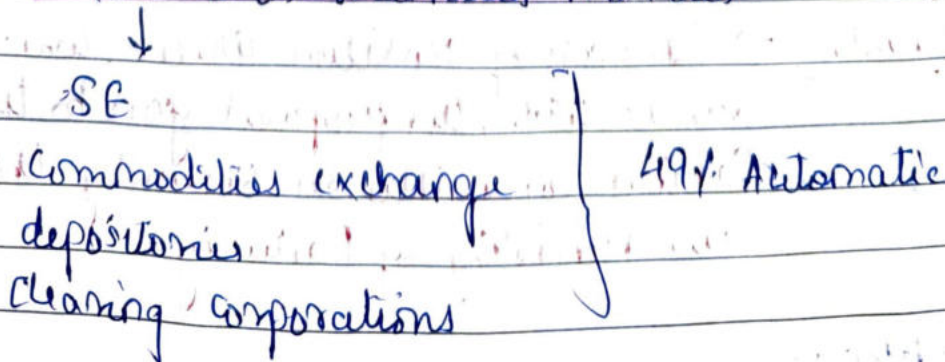 ↓
SE
Commodities exchange
depositories
Clearing corporations
49% Automatic